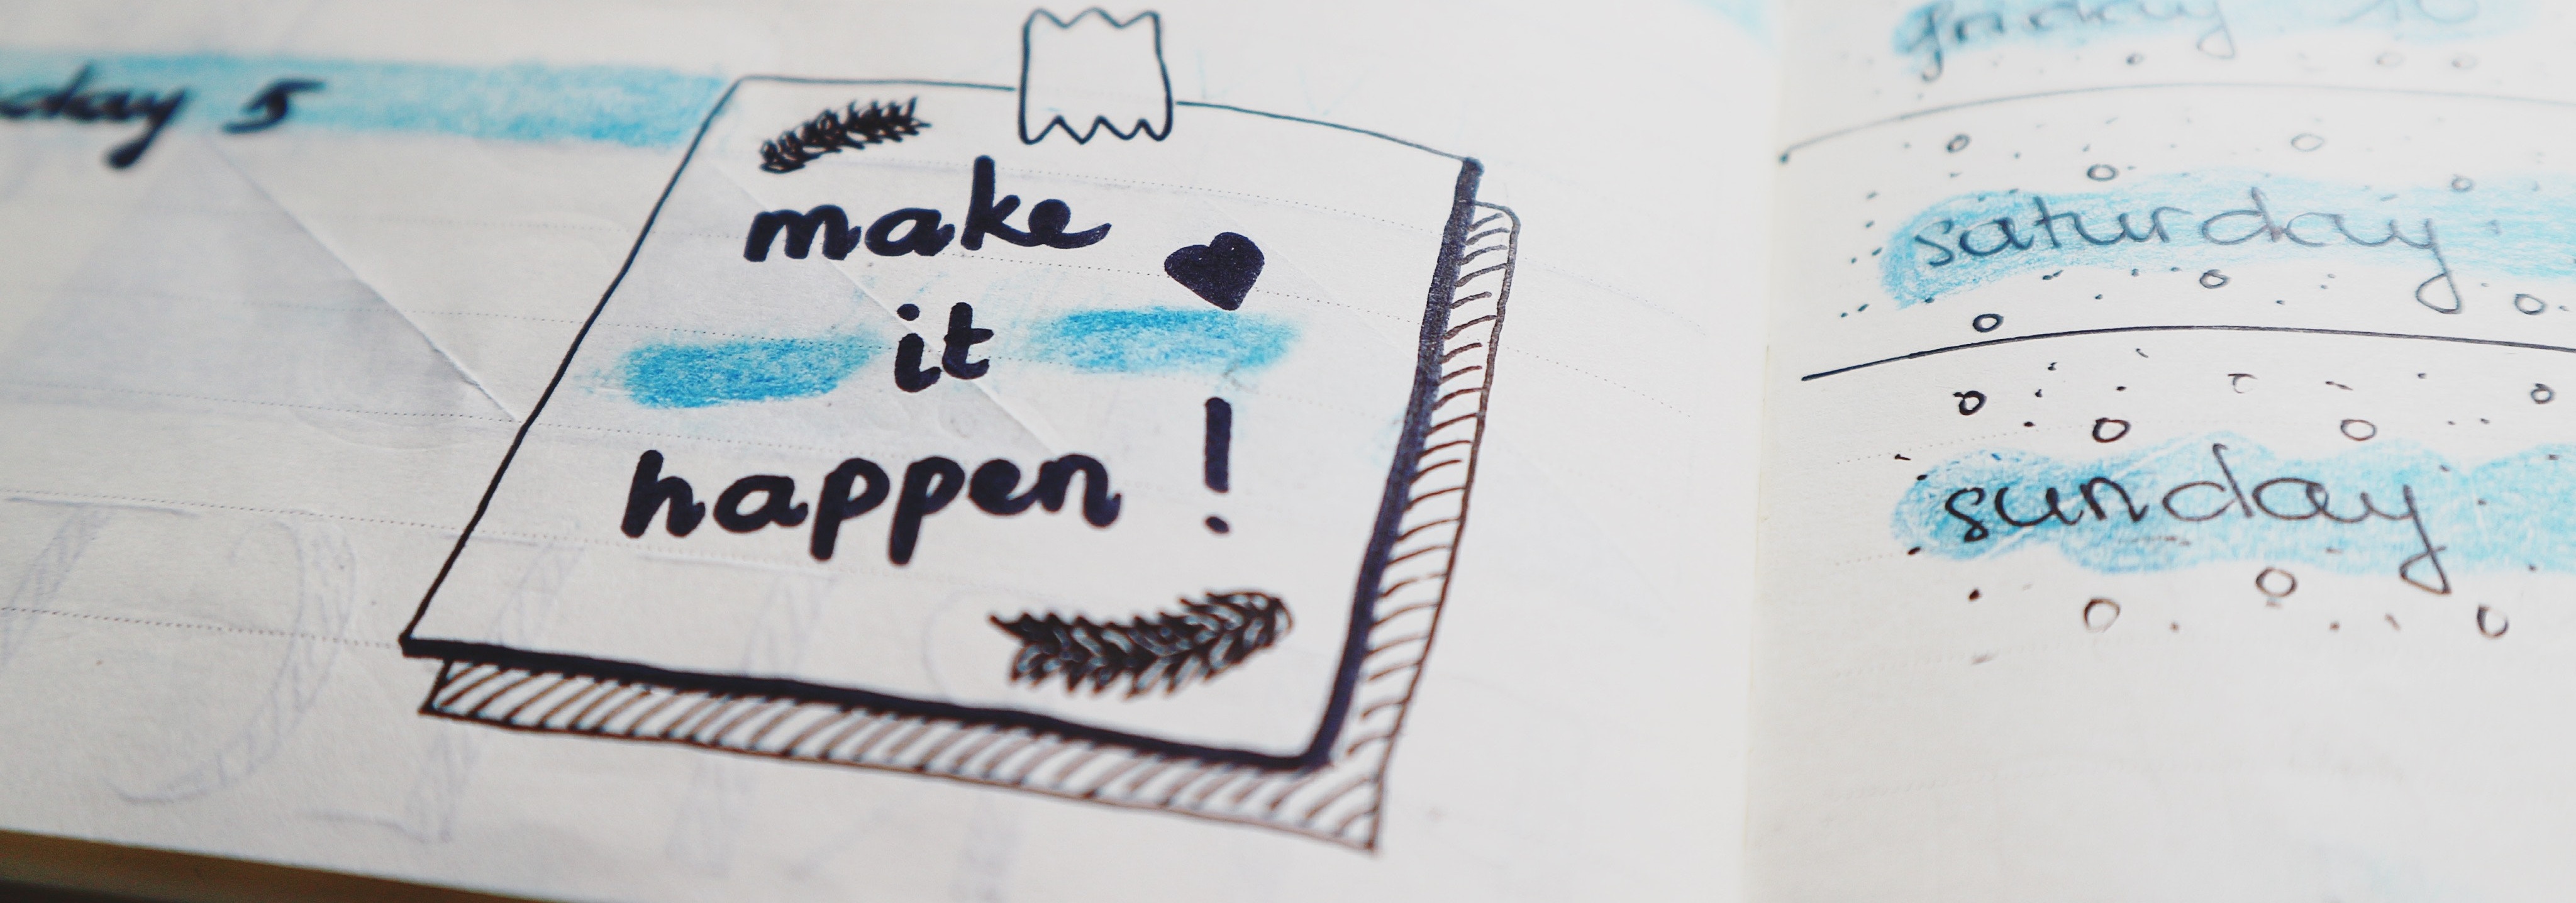 day 5
make
it
happen!
friday
saturday
sunday